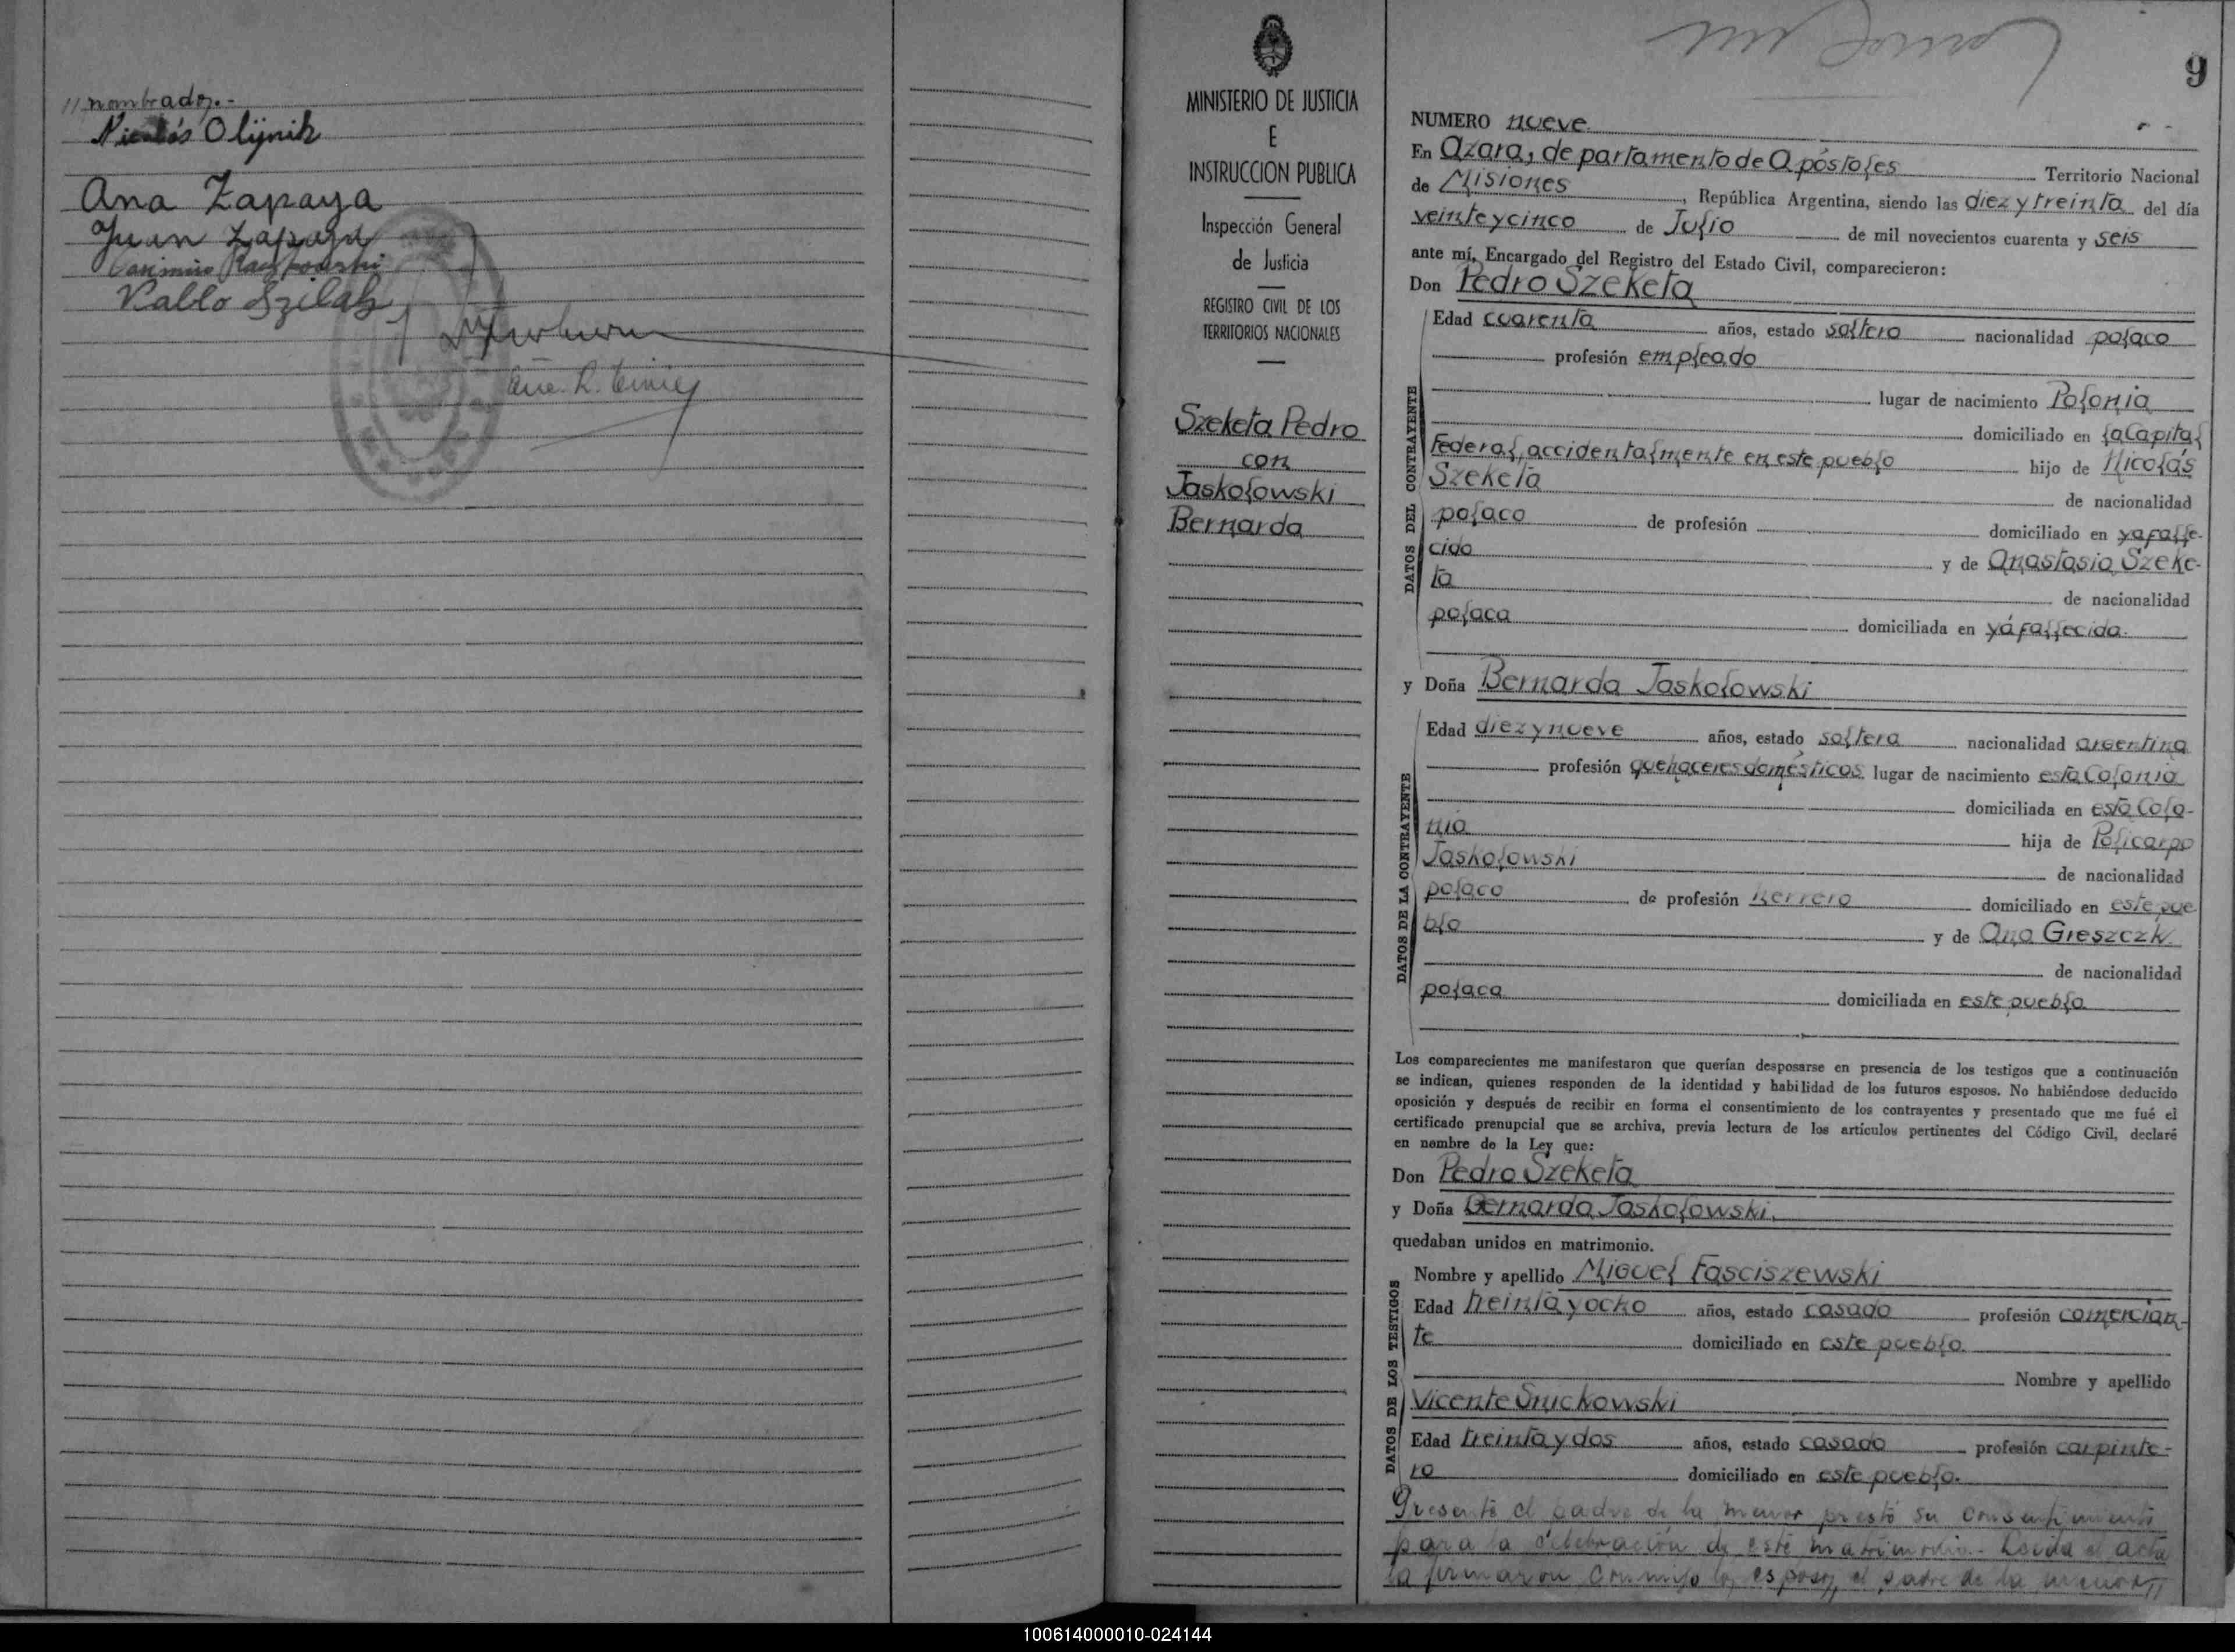 // nombrados.-
Nicolás Olijnik
Ana Zapaya
Juan Zapaya
Casimiro
Pablo Szilak
MINISTERIO DE JUSTICIA
E
INSTRUCCION PUBLICA
Inspección General
de Justicia
REGISTRO CIVIL DE LOS
TERRITORIOS NACIONALES
Szeketa Pedro
con
Jaskolowski
Bernarda
9
NUMERO nueve
En Azara, departamento de Apóstoles Territorio Nacional
de Misiones, República Argentina, siendo las diez y treinta del día
veinte y cinco de Julio de mil novecientos cuarenta y seis
ante mí, Encargado del Registro del Estado Civil, comparecieron:
Don Pedro Szeketa
DATOS DEL CONTRAYENTE
Edad cuarenta años, estado soltero nacionalidad polaco
profesión empleado
lugar de nacimiento Polonia
domiciliado en la Capital
Federal, accidentalmente en este pueblo hijo de Nicolás
Szeketa de nacionalidad
polaco de profesión domiciliado en ya falle-
cido y de Anastasia Szeke-
ta de nacionalidad
polaca domiciliada en yá fallecida.
y Doña Bernarda Jaskolowski
DATOS DE LA CONTRAYENTE
Edad diez y nueve años, estado soltera nacionalidad argentina
profesión quehaceres domésticos lugar de nacimiento esta Colonia
domiciliada en esta Colo-
nia hija de Policarpo
Jaskolowski de nacionalidad
polaco de profesión herrero domiciliado en este pue-
blo y de Ana Greszczk
de nacionalidad
polaca domiciliada en este pueblo
Los comparecientes me manifestaron que querían desposarse en presencia de los testigos que a continuación
se indican, quienes responden de la identidad y habilidad de los futuros esposos. No habiéndose deducido
oposición y después de recibir en forma el consentimiento de los contrayentes y presentado que me fué el
certificado prenupcial que se archiva, previa lectura de los artículos pertinentes del Código Civil, declaré
en nombre de la Ley que:
Don Pedro Szeketa
y Doña Bernarda Jaskolowski.
quedaban unidos en matrimonio.
DATOS DE LOS TESTIGOS
Nombre y apellido Miguel Fasciszewski
Edad treinta y ocho años, estado casado profesión comercian-
te domiciliado en este pueblo
Nombre y apellido
Vicente Snickowski
Edad treinta y dos años, estado casado profesión carpinte-
ro domiciliado en este pueblo.
Presente el padre de la menor prestó su consentimiento
para la celebración de este matrimonio.- Leida el acta
la firmaron conmigo los esposos, el padre de la menor //
100614000010-024144